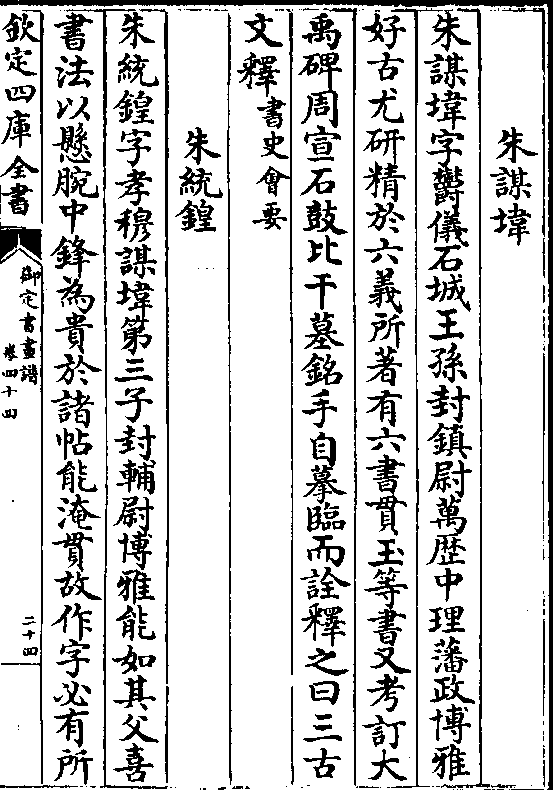 朱謀㙔
朱謀㙔字鬱儀石城王孫封鎮尉萬歴中理藩政博雅
好古尤研精於六義所著有六書貫玉等書又考訂大
禹碑周宣石鼓比干墓銘手自摹臨而詮釋之曰三古
文釋書史會要
朱統鍠
朱統鍠字孝穆謀㙔第三子封輔尉博雅能如其父喜
書法以懸腕中鋒為貴於諸帖能淹貫故作字必有所
欽定四庫全書
御定書畫譜
卷四十四
二十四